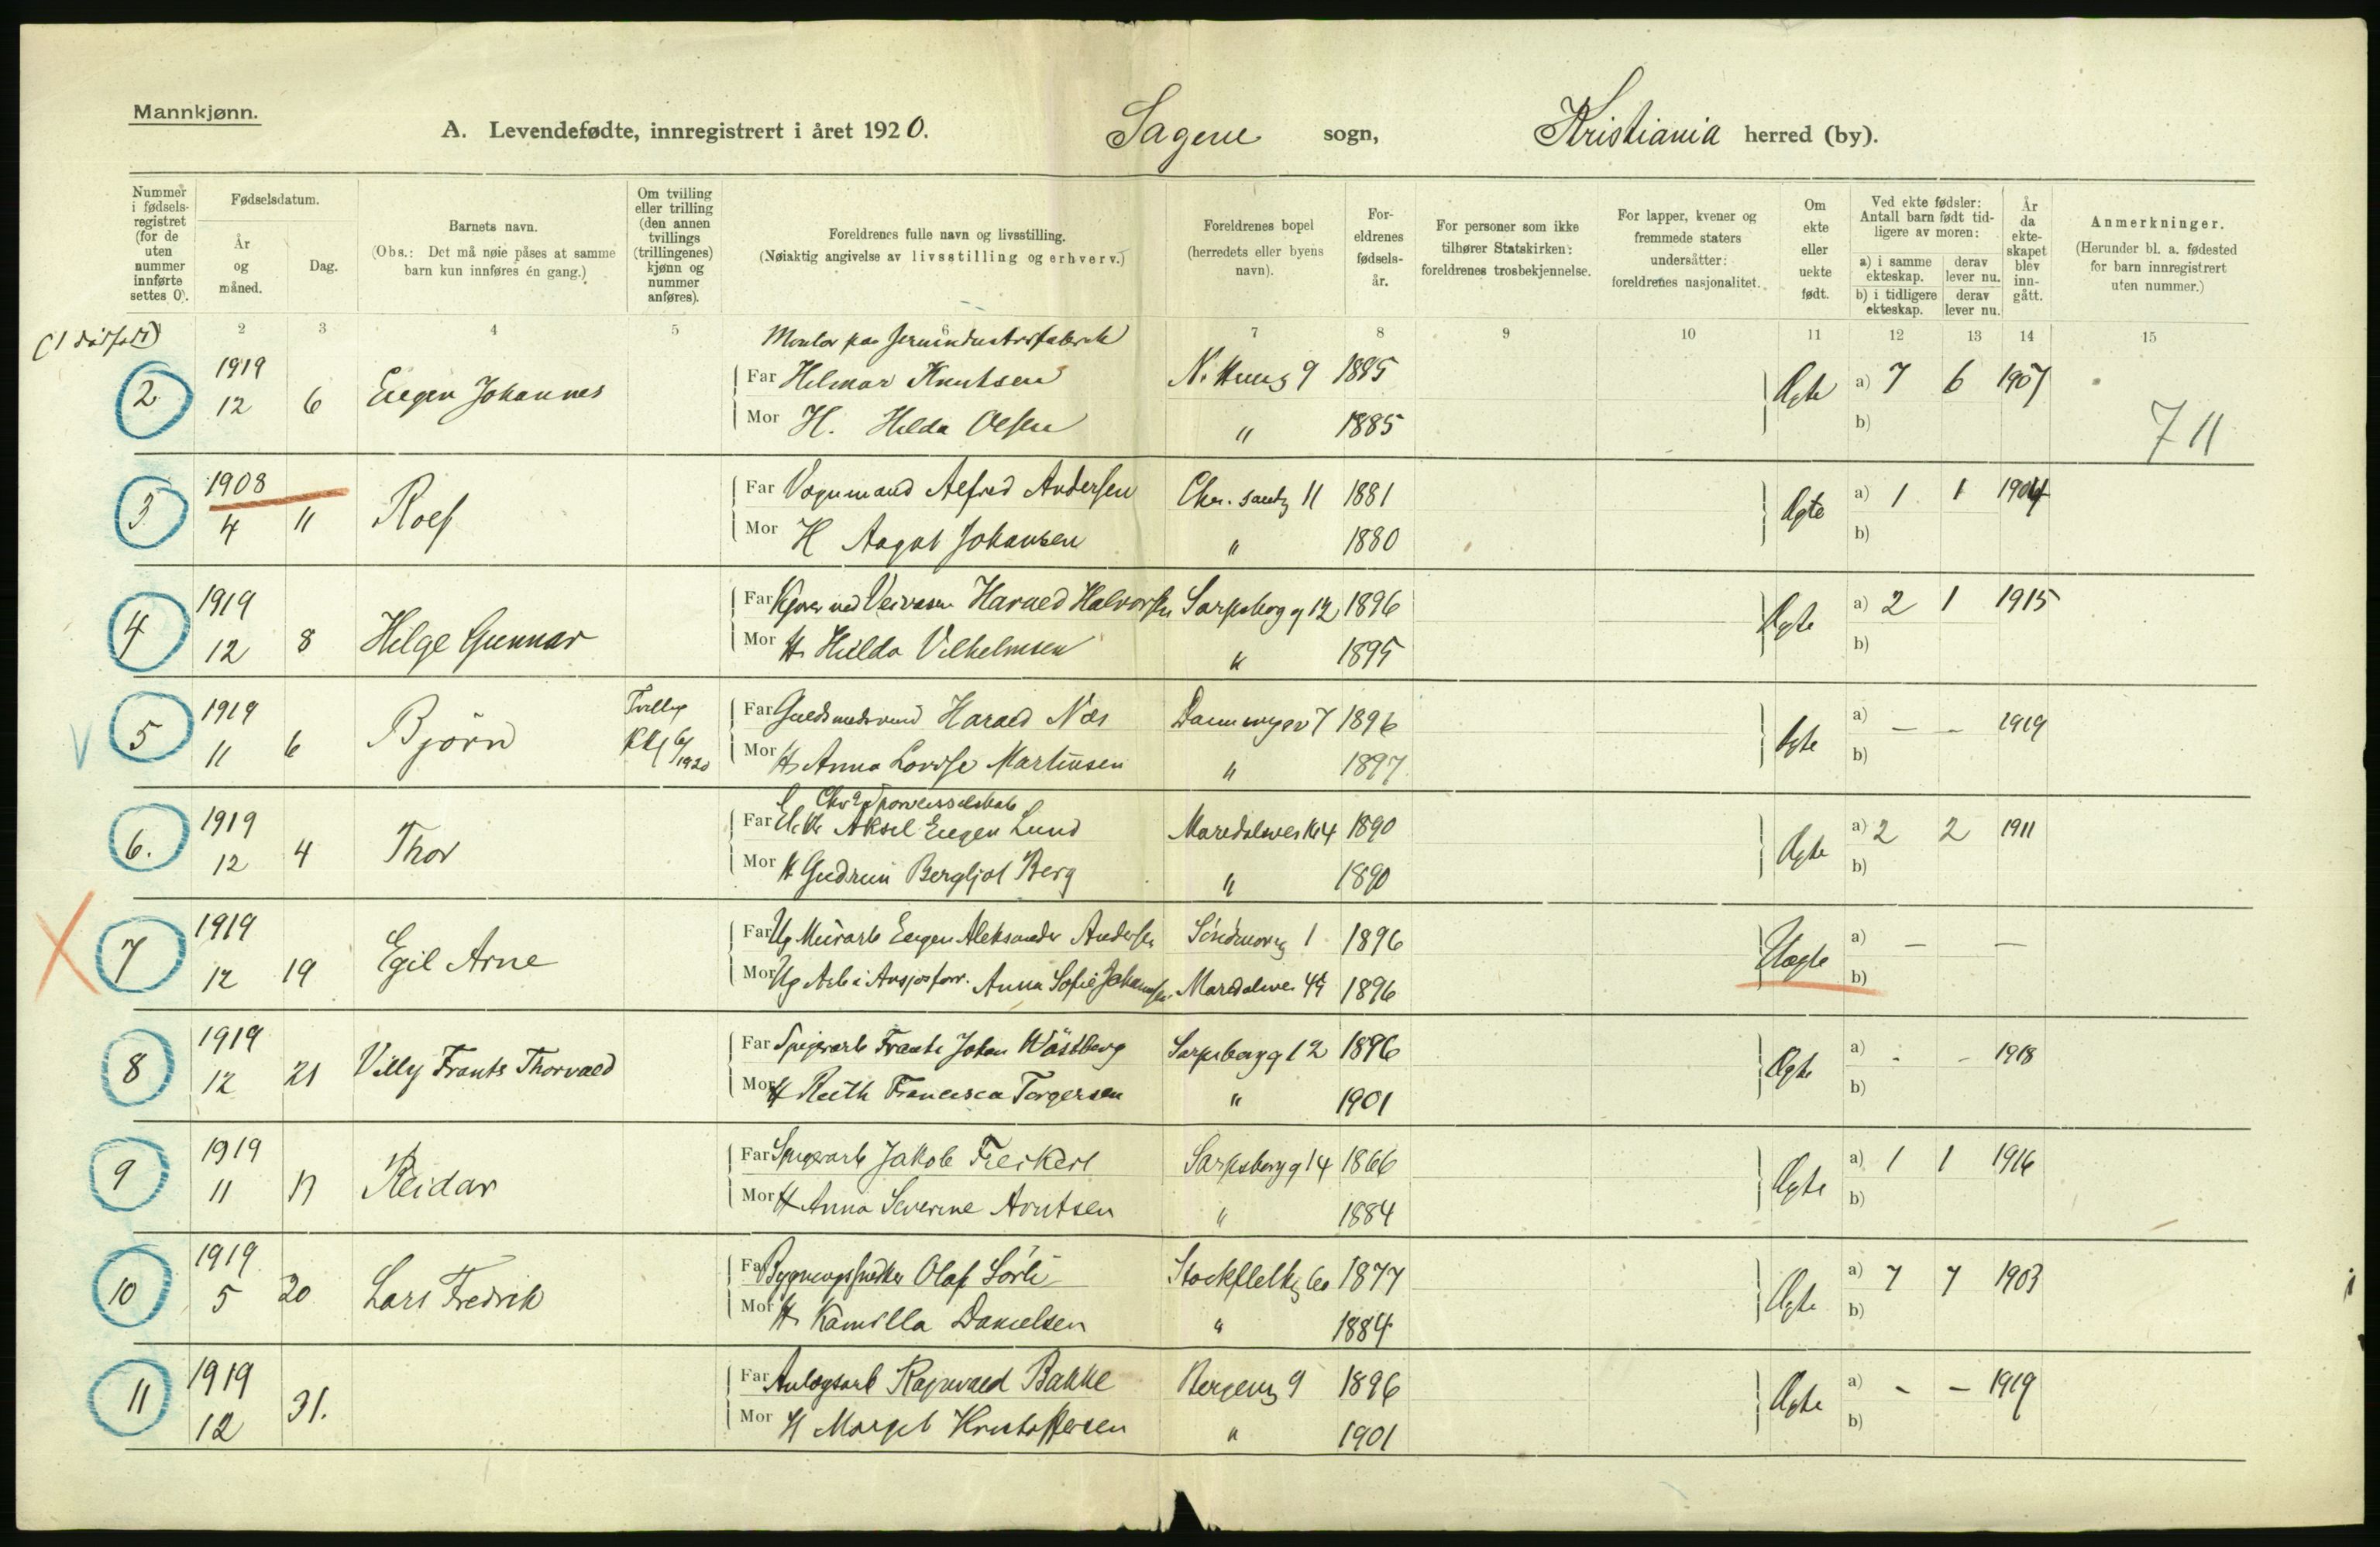 Mannkjønn.
A. Levendefødte, innregistrert i året 1920. Sagene sogn, Kristiania herred (by).
Nummer i fødsels-registret (for de uten nummer innførte settes 0).
Fødselsdatum.
År og måned.
Dag.
Barnets navn.
(Obs.: Det må nøie påses at samme barn kun innføres én gang.)
Om tvilling eller trilling (den annen tvillings (trillingenes) kjønn og nummer anføres).
Foreldrenes fulle navn og livsstilling.
(Nøiaktig angivelse av livsstilling og erhverv.)
Foreldrenes bopel
(herredets eller byens navn).
For-eldrenes fødsels-år.
For personer som ikke tilhører Statskirken: foreldrenes trosbekjennelse.
For lapper, kvener og fremmede staters undersåtter: foreldrenes nasjonalitet.
Om ekte eller uekte født.
Ved ekte fødsler: Antall barn født tid-ligere av moren:
a) i samme ekteskap.
derav lever nu.
b) i tidligere ekteskap.
derav lever nu.
År da ekte-skapet blev inn-gått.
Anmerkninger.
(Herunder bl. a. fødested for barn innregistrert uten nummer.)
2 3 4 5 6 7 8 9 10 11 12 13 14 15
2 1919 12 6 Eugen Johannes
Far Hilmar Knutsen 9 1885
Mor H. Hilda Olsen " 1885
Ægte a) 7 6 1907
b)
711
3 1908 4 11 Rolf
Far Vognmand Alfred Andersen 11 1881
Mor H Aagot Johansen " 1880
Ægte a) 1 1 1904
b)
4 1919 12 8 Helge Gunnar
Far Harald Halvorsen Sarpsborg g 12 1896
Mor H. Hilda Vilhelmsen " 1895
Ægte a) 2 1 1915
b)
V 5 1919 11 6 Bjørn Tvilling 6/1920
Far Harald Næs 7 1896
Mor H. Anna Lovise Martinsen " 1897
Ægte a) — - 1919
b)
6. 1919 12 4 Thor
Far Aksel Eugen Lund Maridalsvei 1890
Mor H Gudrun Bergljot Berg " 1890
Ægte a) 2 2 1911
b)
X 7 1919 12 19 Egil Arne
Far Ug Murarb Eugen Aleksander Andersen 1 1896
Mor Ug Arb i Anna Sofie Johansen Maridalsvei 1896
Uægte a) — —
b)
8 1919 12 21 Villy Frants Thorvald
Far Spigerarb Frants Johan Wästberg Sarpsborg g 12 1896
Mor H Ruth Francisca Torgersen " 1901
Ægte a) - - 1918
b)
9 1919 11 Reidar
Far Spigerarb Jakob Sarpsborg g 14 1866
Mor H Anna Severine Arntsen " 1884
Ægte a) 1 1 1916
b)
10 1919 5 20 Lars Fredrik
Far Bygningssnedker Olaf Sörli 1877
Mor H. Kamilla Danielsen " 1884
Ægte a) 7 7 1903
b)
11 1919 12 31.
Far Anlægsarb Ragnvald Bakke Bergensg 9 1896
Mor H Margit Kristoffersen " 1901
Ægte a) - - 1919
b)